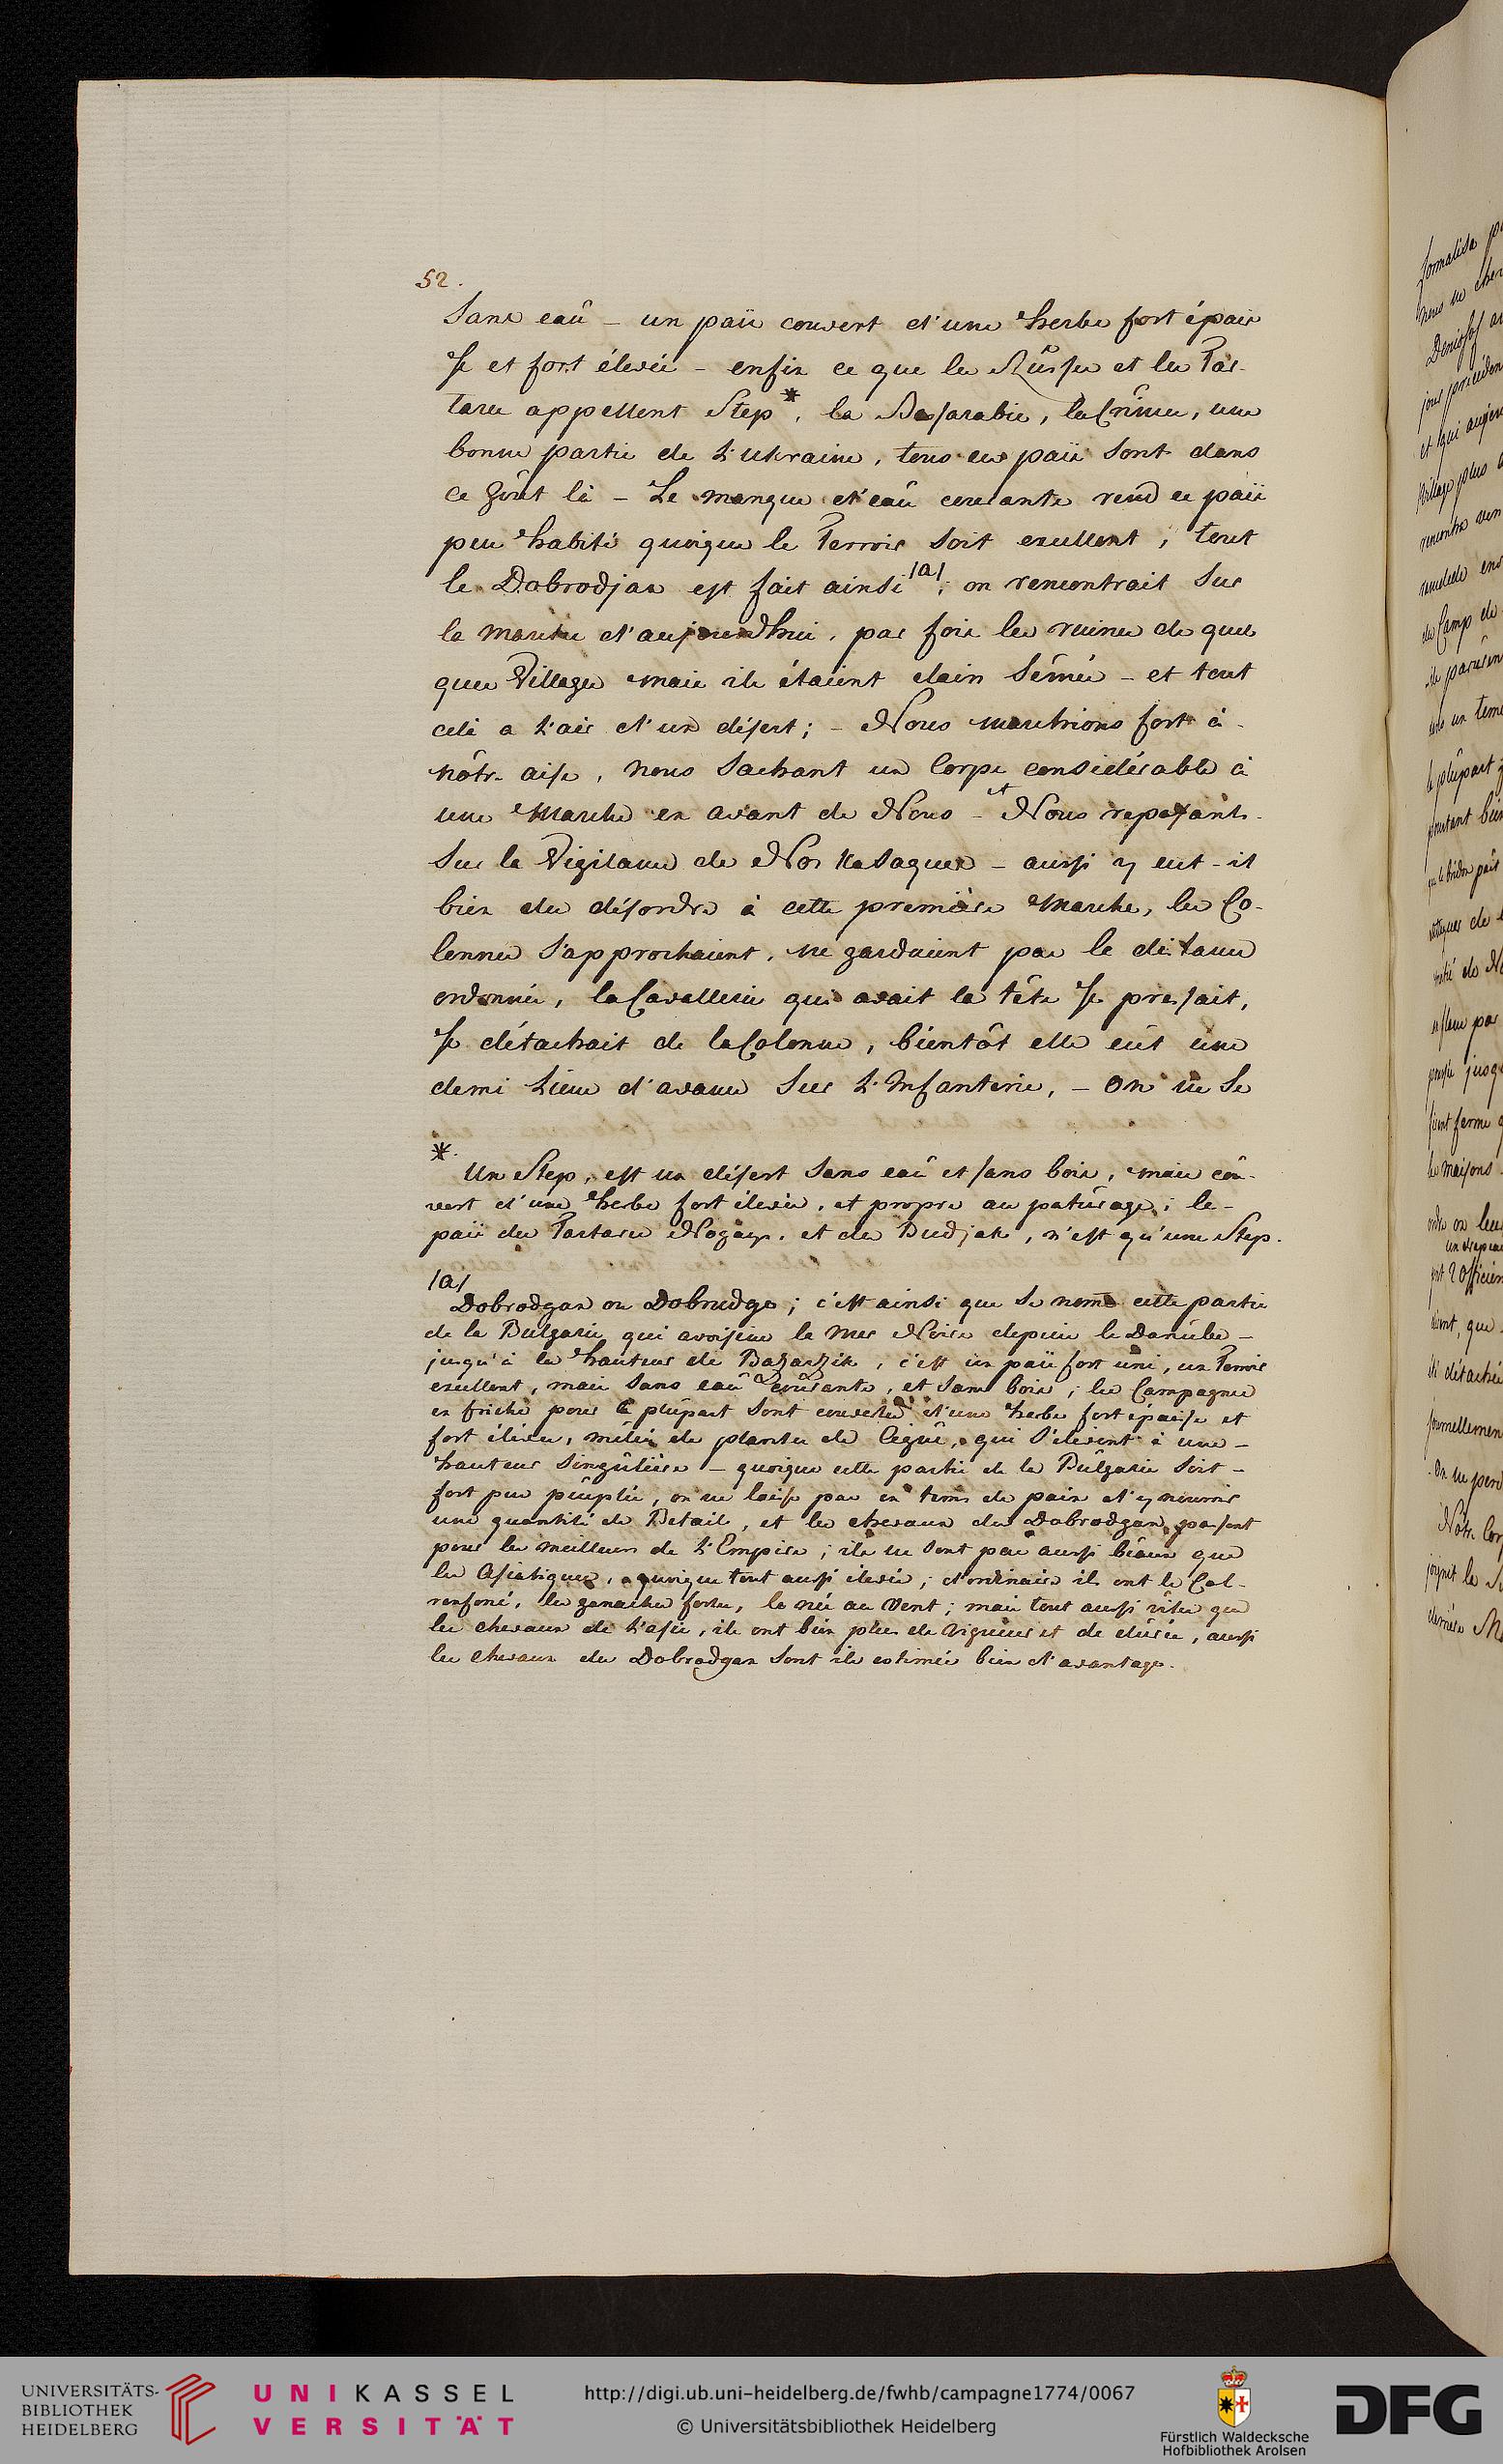 52.
Sans eaû – un païs couvert d'une herbe fort épais
se et fort élevée – enfin ce que les Rüsses et les Tar-
tares appellent Step*, la Bessarabie, la Crimée, une
bonne partie de L'ukraine, tous ces païs sont dans
ce goût là – Le manque d'eaû courante rend ce païs
peu habité quoique le Terroir soit excellent; tout
le Dobrodjan est fait ainsi /a/; on rencontrait sur
la marche d'aujourdhui, par fois les ruines de quel
ques Villages mais ils étaient clair sémés – et tout
celà a l'air d'un désert; – Nous marchions fort à
nôtre aise, nous sachant un Corps considérable à
une Marche en avant de Nous – et Nous reposants
sur la Vigilance de Nos Kosaques – aussi y eut-il
bien du désordre à cette premiére Marche, les Co-
lonnes s'approchaient, ne gardaient pas la distance
ordonnée, la Cavallerie qui avait la tête se pressait,
se détachait de la Colonne, bientôt elle eût une
demi Lieue d'avance sur L'Infanterie, – On ne se
*.
Un Step, est un désert sans eaû et sans bois, mais cou-
vert d'une herbe fort élevée, et propre au paturage; le-
païs des Tartares Nogays, et du Budjak, n'est qu'une Step.
/a/
Dobrodgan ou Dobrudge; c'est ainsi que se nome cette partie
de la Bulgarie qui avoisine la Mer Noire depuis le Danube –
jusqu'à la hauteur de Bazarzik, c'est un païs fort uni, un Terroir
excellent, mais sans eaû courante, et sans bois; les Campagnes
en friche pour la plûpart sont couvertes d'une herbe fort épaisse et
fort élevée, mêlée de plantes de Ciguë, qui s'élevent à une –
hauteur singûliére – quoique cette partie de la Bûlgarie soit –
fort peu peûplée, on ne laisse pas en tems de paix d'y nourrir
une quantité de Betail, et les chevaux du Dobrodgan passent
pour les meilleurs de L'Empire; ils ne sont pas aussi beaux que
les Asiatiques, quoique tout aussi élevés; d'ordinaire ils ont le Col
renfoncé, les ganaches fortes, le néz au Vent; mais tout aussi vites que
les chevaux de L'asie, ils ont bien plus de Vigueur et de durée, aussi
les chevaux du Dobrodgan sont ils estimés bien d'avantage.
UNIVERSITÄTS-
BIBLIOTHEK
HEIDELBERG
UNIKASSEL
VERSITÄT
http://digi.ub.uni-heidelberg.de/fwhb/campagne1774/0067
© Universitätsbibliothek Heidelberg
Fürstlich Waldecksche
Hofbibliothek Arolsen
DFG